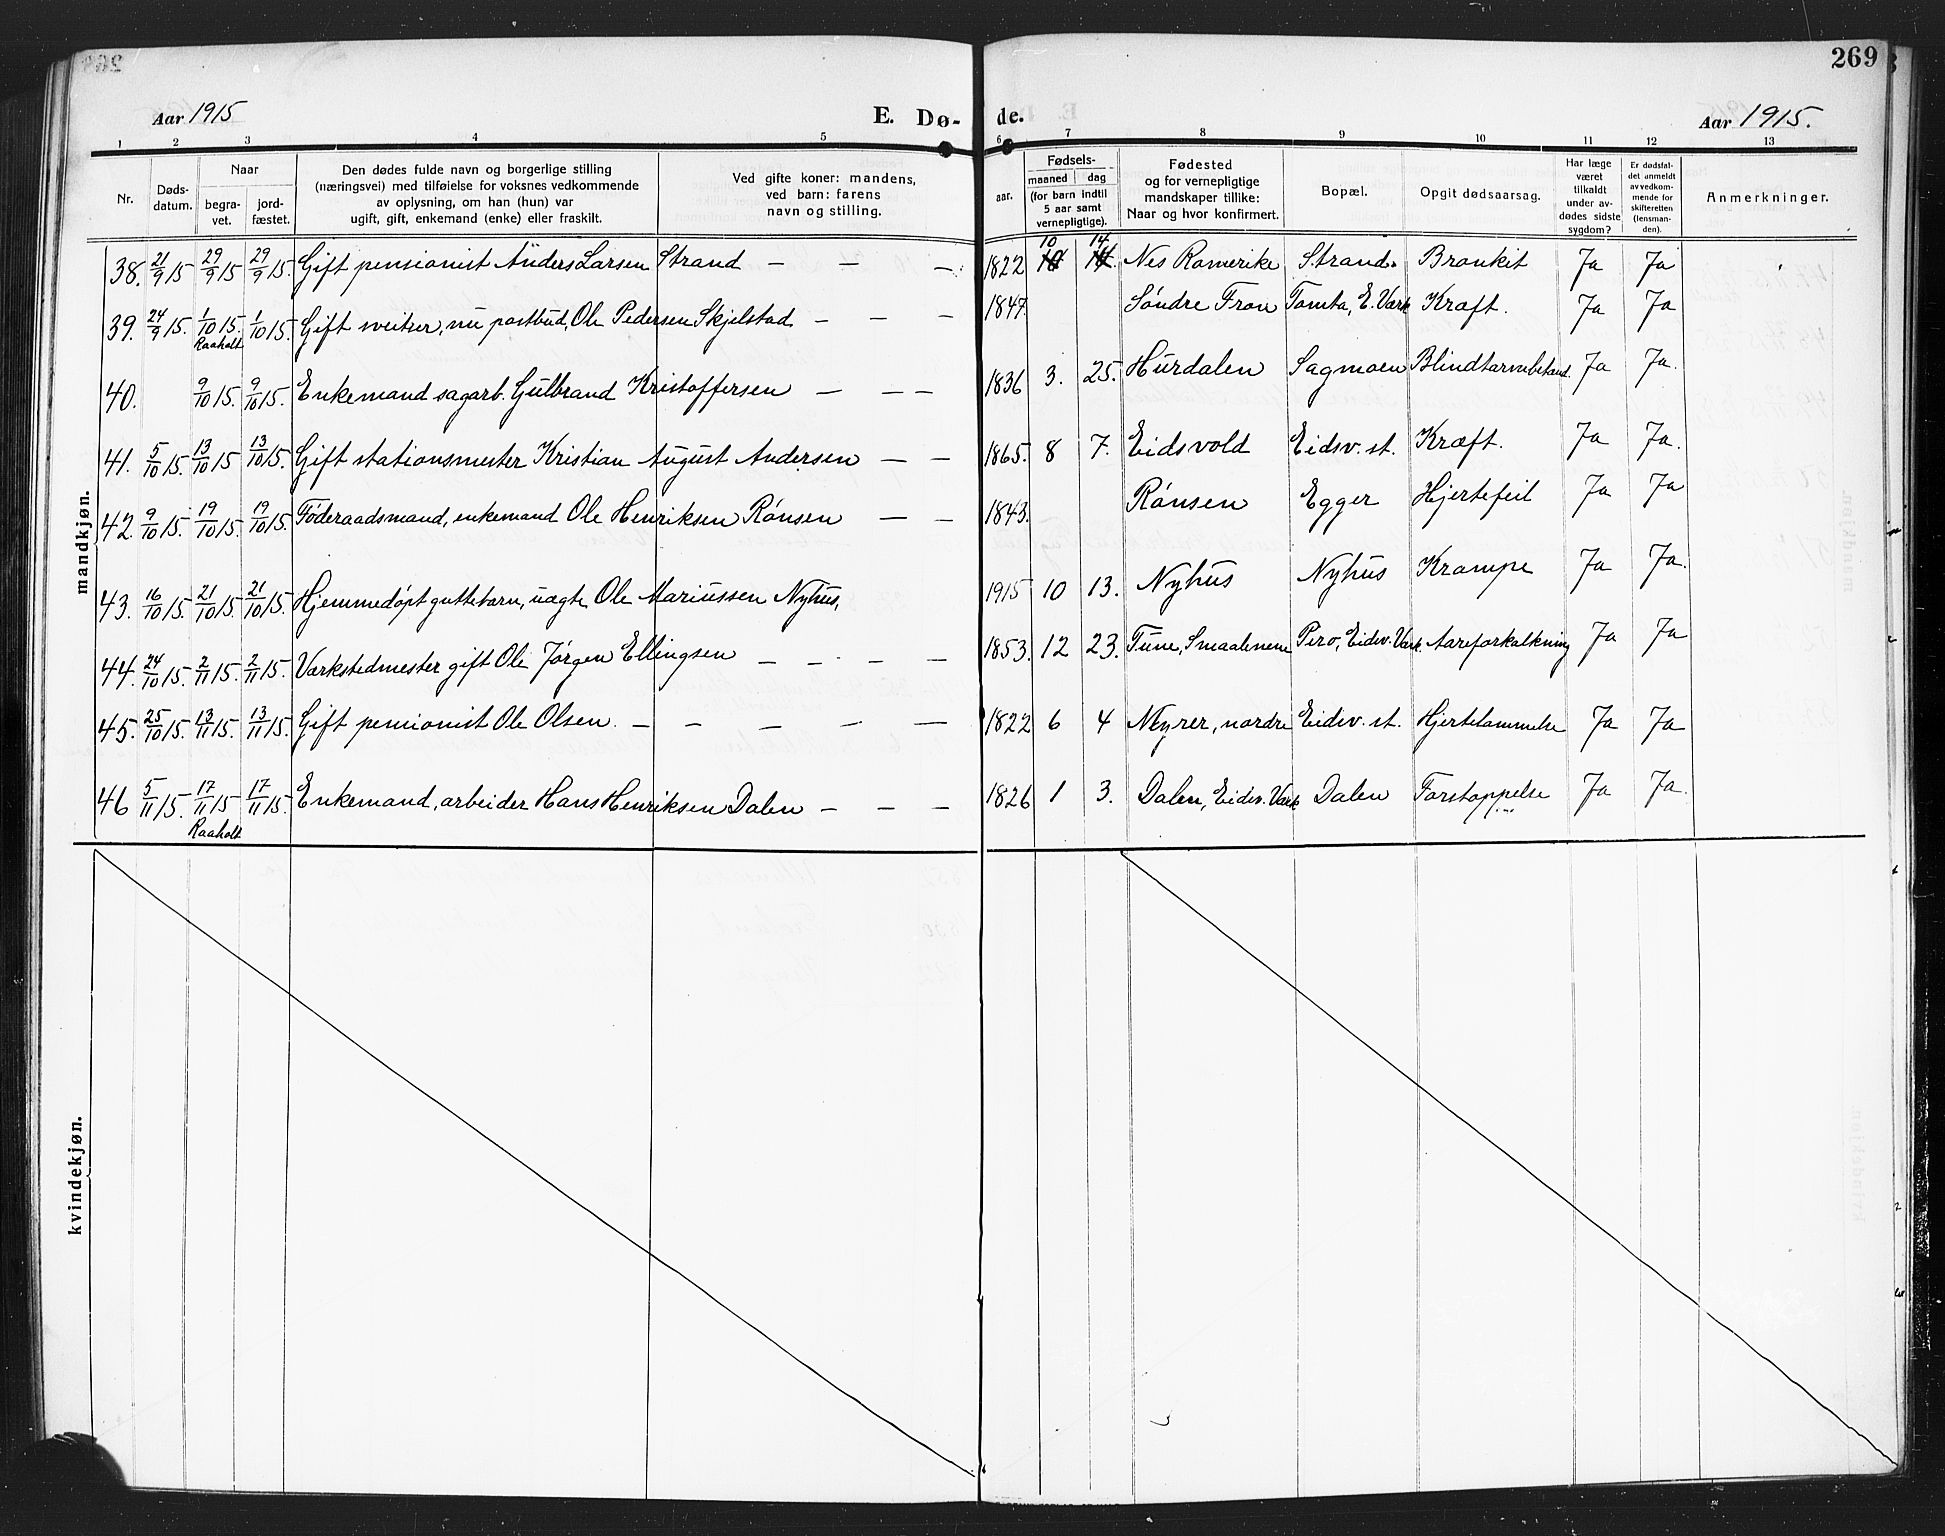 269
Aar 1915 E. Dø- de. Aar 1915.
1 2 3 4 5 6 7 8 9 10 11 12 13
Nr.
Døds-
datum.
Naar
begra-
vet.
jord-
fæstet.
Den dødes fulde navn og borgerlige stilling
(næringsvei) med tilføielse for voksnes vedkommende
av oplysning, om han (hun) var
ugift, gift, enkemand (enke) eller fraskilt.
Ved gifte koner: mandens,
ved barn: farens
navn og stilling.
Fødsels-
aar.
maaned dag
(for barn indtil
5 aar samt
vernepligtige).
Fødested
og for vernepligtige
mandskaper tillike:
Naar og hvor konfirmert.
Bopæl.
Opgit dødsaarsag.
Har læge
været
tilkaldt
under av-
dødes sidste
sygdom?
Er dødsfal-
det anmeldt
av vedkom-
mende for
skifteretten
(lensman-
den).
Anmerkninger.
mandkjøn.
38. 21/9 15 29/9 15 29/9 15. Gift pensionist Anders Larsen Strand — — — 1822 10 14. Nes Romerike Strand. Bronkit Ja Ja
39. 24/9 15. 1/10 15. Raaholt 1/10 15. Gift sveitser, nu postbud, Ole Pedersen Skjelstad — — — 1847. Søndre Fron Tomta, E. Værk Kræft. Ja Ja
40. 9/10 15. 9/10 15. Enkemand sagarb. Gulbrand Kristoffersen — — — 1836 3. 25. Hurdalen Sagmoen Blindtarmbetænd. Ja Ja.
41. 5/10 15. 13/10 15 13/10 15. Gift stationsmester Kristian August Andersen — — 1865. 8 7. Eidsvold Eidsv. st. Kræft. Ja Ja.
42. 9/10 15. 19/10 15. 19/10 15. Føderaadsmand, enkemand Ole Henriksen Rønsen — — 1843. Rønsen Egger Hjertefeil Ja Ja
43. 16/10 15. 21/10 15. 21/10 15. Hjemmedøpt guttebarn, uægte Ole Mariussen Nyhus, 1915 10 13. Nyhus Nyhus Krampe Ja Ja.
44. 24/10 15. 2/11 15. 2/11 15. Værkstedmester gift Ole Jørgen Ellingsen — — — — 1853. 12 23. Tune, Smaalenene Pero, Eidsv. Værk. Aareforkalkning Ja Ja
45. 25/10 15. 13/11 15. 13/11 15. Gift pensionist Ole Olsen. — — — — — 1822 6 4 nordre Eidsv. st. Hjertelammelse Ja Ja
46 5/11 15. 17/11 15 Raaholt 17/11 15. Enkemand, arbeider Hans Henriksen Dalen — — — 1826 1 3. Dalen, Eidsv. Værk Dalen Forstoppelse Ja Ja.
kvindekjøn.